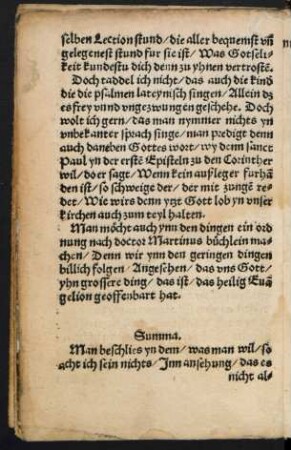 selben Lection stund / die aller bequemst vñ
gelegenest stund fur sie ist / Was Gotseli-
keit kundestu dich denn zu yhnen vertröstē.
Doch taddel ich nicht / das auch die kind
die die psalmen lateynisch singen / Allein dz
es frey vnnd vngezwungen geschehe. Doch
wolt ich gern / das man nymmer nichts yn
vnbekanter sprach singe / man predigt denn
auch daneben Gottes wort / wy denn sanct
Paul yn der erstē Episteln zu den Corinther
wil / do er sagt / Wenn kein außleger furhā
den ist / so schweige der / der mit zungē re-
det / Wie wirs denn ytzt Gott lob yn vnser
kirchen auch zum teyl halten.
Man möcht auch ynn den dingen ein ord
nung nach doctor Martinus büchlein ma-
chen / Denn wir ynn den geringen dingen
billich folgen / Angesehen / das vns Gott /
yhn grossere ding / das ist / das heilig Euā
gelion geoffenbart hat.
Summa.
Man beschlies yn dem / was man wil / so
acht ich sein nichts / Jnn ansehung / das es
nicht al-